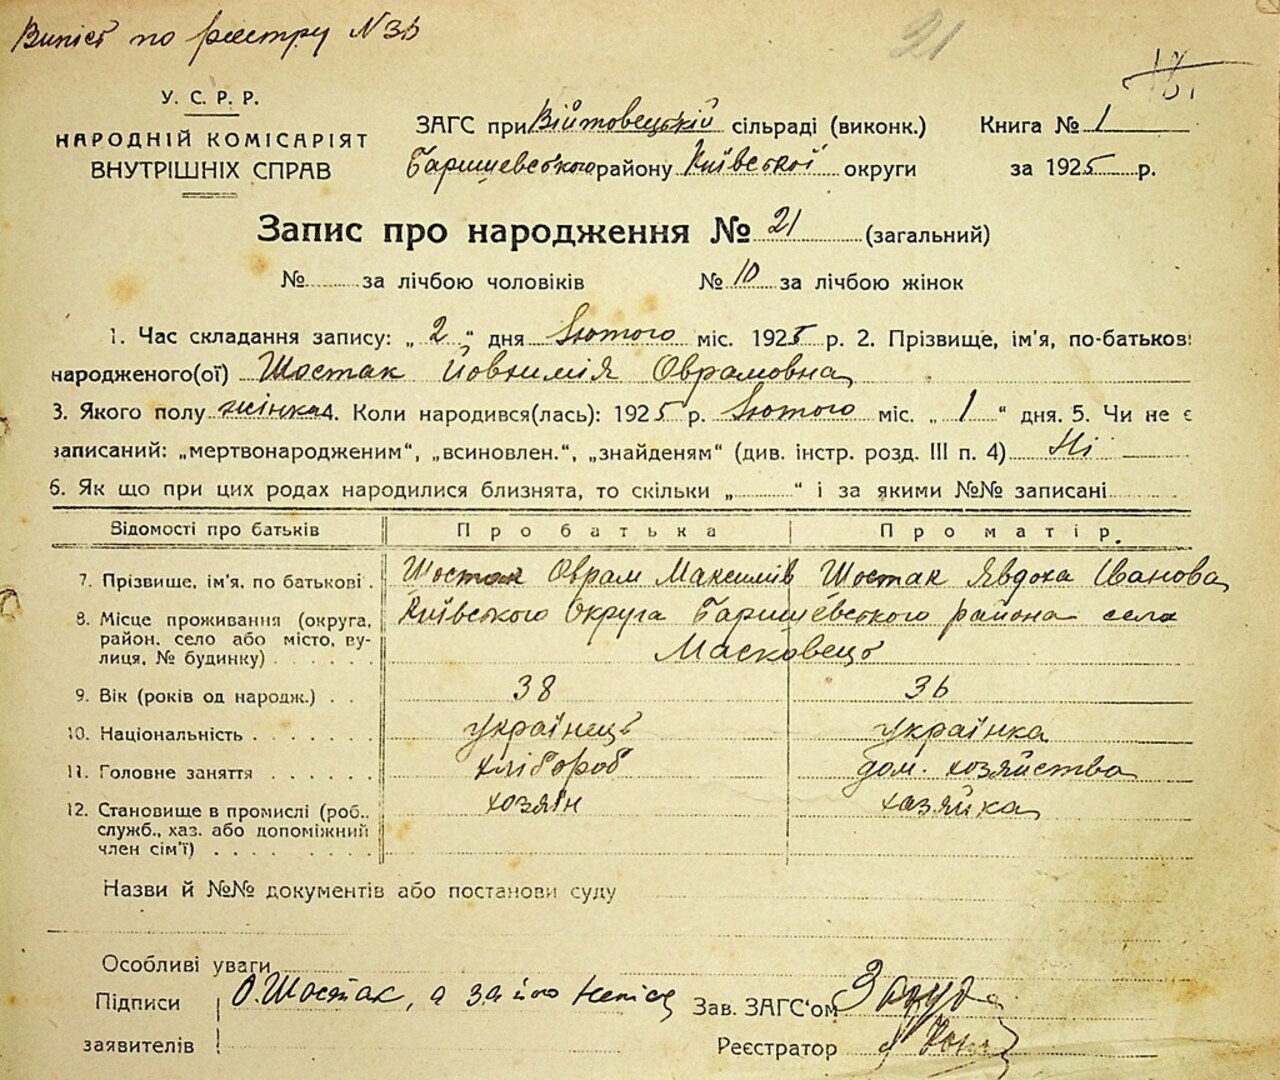 Випіс по реєстру N 36
21
У. С. Р. Р.
НАРОДНІЙ КОМІСАРІЯТ
ВНУТРІШНІХ СПРАВ
ЗАГС при Війтовецькій сільраді (виконк.)
Книга № 1
Баришевського району Київської округи
за 1925 р.
Запис про народження № 21 (загальний)
№ за лічбою чоловіків № 10 за лічбою жінок
1. Час складання запису: „ 2 “ дня Лютого міс. 1925 р. 2. Прізвище, ім'я, по-батькові
народженого(ої) Шостак Йовхимія Оврамовна
3. Якого полу жінка 4. Коли народився(лась): 1925 р. Лютого міс. „ 1 “ дня. 5. Чи не є
записаний: „мертвонародженим“, „всиновлен.“, „знайденям“ (див. інстр. розд. III п. 4) Ні
6. Як що при цих родах народилися близнята, то скільки „ “ і за якими №№ записані
Відомості про батьків Про батька Про матір.
7. Прізвище, ім'я, по батькові . Шостак Оврам Максимів Шостак Явдоха Іванова
8. Місце проживання (округа, Київського Округа Баришевського района села
район, село або місто, ву-
лиця, № будинку) Масковець
9. Вік (років од народж.) . . 38 36
10. Національність українець українка
11. Головне заняття хлібороб дом. хозяйства
12. Становище в промислі (роб., хозяін хазяйка
служб., хаз. або допоміжний
член сім'ї)
Назви й №№ документів або постанови суду
Особливі уваги
Підписи О. Шостак, а за його
заявителів
Зав. ЗАГС'ом
Реєстратор